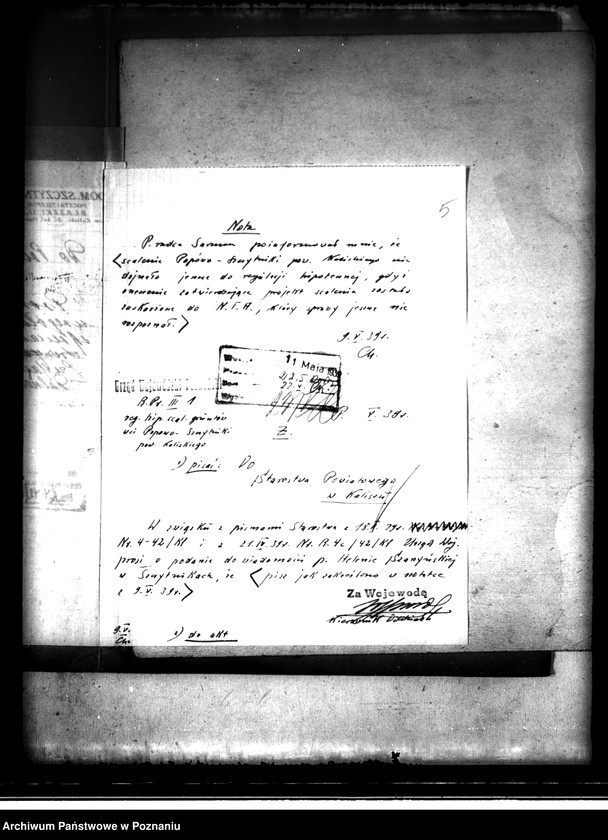 5
Nota
P. radca Sarnum poinformował mnie, że
scalenie Popówo - Szczytniki pow. Kaliskiego nie
dojrzało jeszcze do regulacji hipotecznej, gdyż
orzeczenie zatwierdzające projekt scalenia zostało
zaskarżone do N.T.A., który sprawy jeszcze nie
rozpoznał.
9. V. 39r.
Ch.
11 Maja 939
22.V. Ch.
Urząd Wojewódzki
R.Ps. III 1
V 39r.
reg. hip. scal. gruntów
wsi Popowo - Szczytniki
pow. Kaliskiego
Z.
1) pisać: Do
Starostwa Powiatowego
w Kaliszu
W związku z pismami Starostwa z
Nr. 4-42/Kl i z 21.IV.39r. Nr. R.4c/42/Kl Urząd Woj.
prosi o podanie do wiadomości p. Helenie
w Szczytnikach, że (pisz jak zakreślono w notatce
z 9.V.39r.)
Za Wojewodę
Kierownik Oddziału
9.V.
Ch.
2) do akt
DOM.SZCZYTN
Archiwum Państwowe w Poznaniu